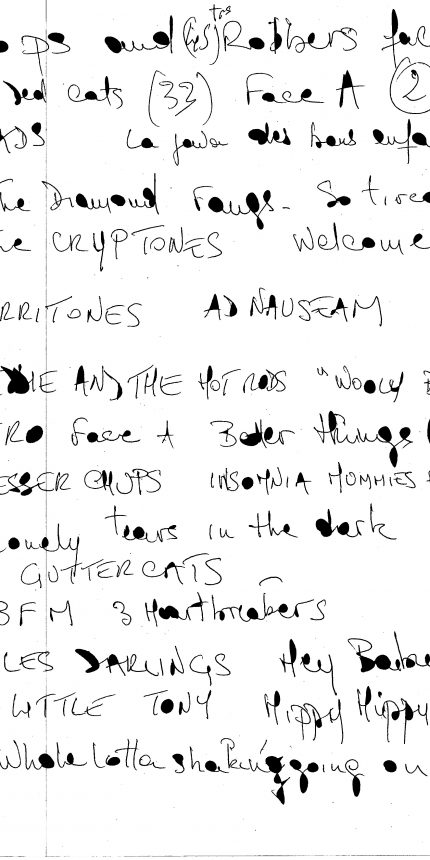 ops and (tres) Robbers fac
ded cats (33) Face A (2
ADS La java des bons enfa
he Diamond Fangs - So tired
he CRYPTONES Welcome
RRITONES AD NAUSEAM
DIE AND THE HOT RODS "WOOLY B
RO face A Better things
ESSER CHUPS INSOMNIA MUMMIES
onely tears in the dark
GUTTERCATS
BFM 3 Heartbreakers
LES DARLINGS Hey Barba
LITTLE TONY Hippy Hippy
Whole Lotta shakin' going on